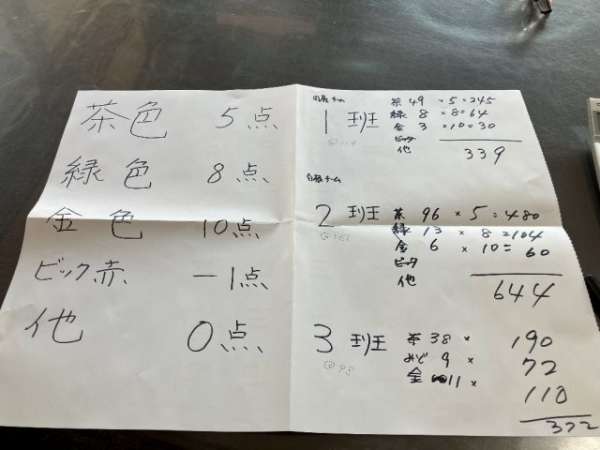 茶色 5点
緑色 8点
金色 10点
ビック赤 -1点
他 0点
1班
茶 49 × 5 = 245
緑 8 × 8 = 64
金 3 × 10 = 30
ビック
他
339
2班
茶 96 × 5 = 480
緑 13 × 8 = 104
金 6 × 10 = 60
ビック
他
644
3班
茶 38 × 190
みど 9 × 72
金 11 × 110
372